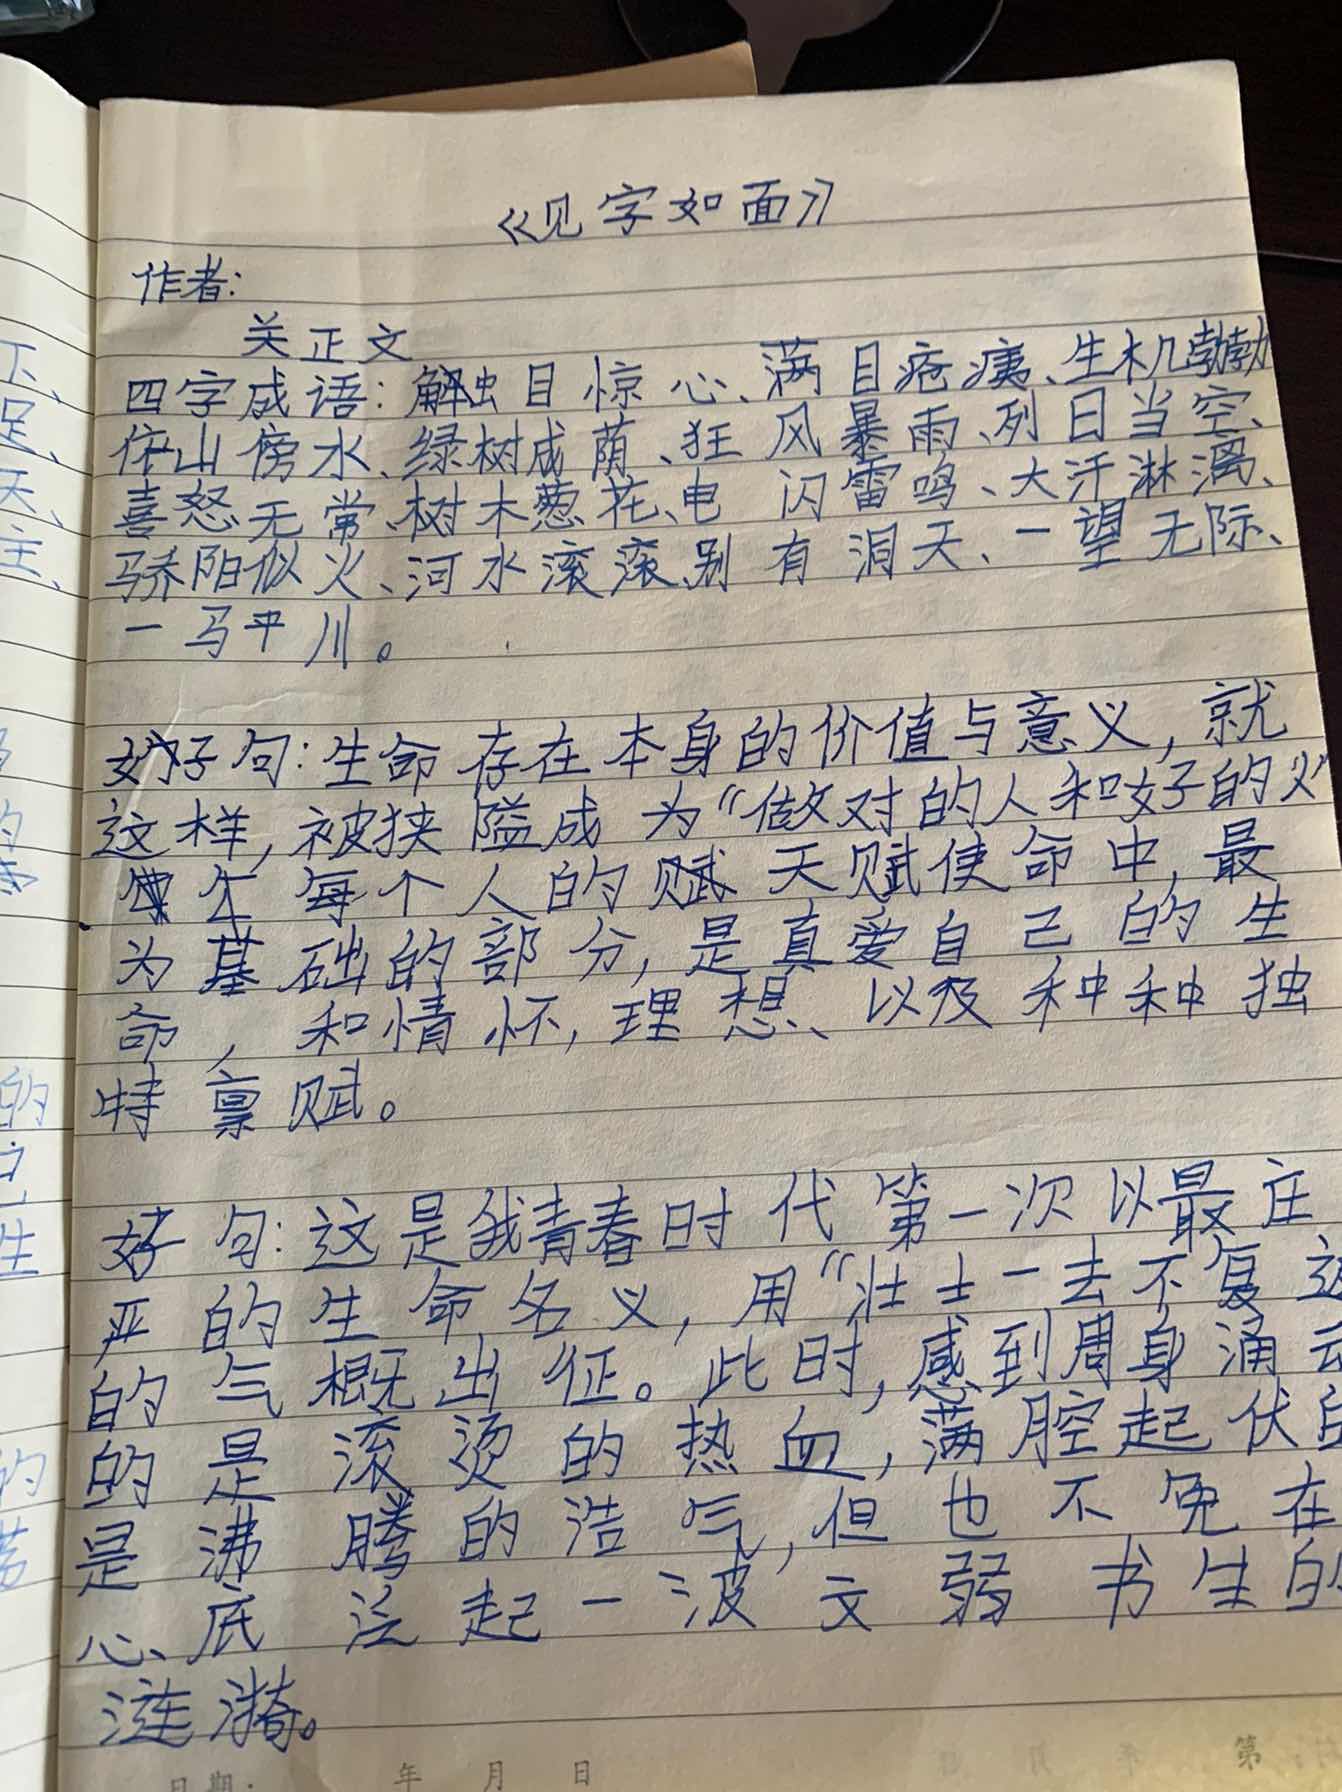 《见字如面》
作者:
关正文
四字成语:触目惊心、满目疮痍、生机勃勃
依山傍水、绿树成荫、狂风暴雨、列日当空、
喜怒无常、树木葱花、电闪雷鸣、大汗淋漓、
骄阳似火、河水滚滚、别有洞天、一望无际、
一马平川。
好句:生命存在本身的价值与意义,就
这样,被狭隘成为“做对的人和好的火”
每个人的赋天赋使命中,最
为基础的部分,是真爱自己的生
命,和情怀,理想、以及种种独
特禀赋。
好句:这是我青春时代第一次以最庄
严的生命名义,用“壮士一去不复返
的气概出征。此时,感到周身涌动
的是滚烫的热血,满腔起伏的
是沸腾的浩气,但也不免在
心、底泛起一波文弱书生的
涟漪。
日期: 年 月 日
第